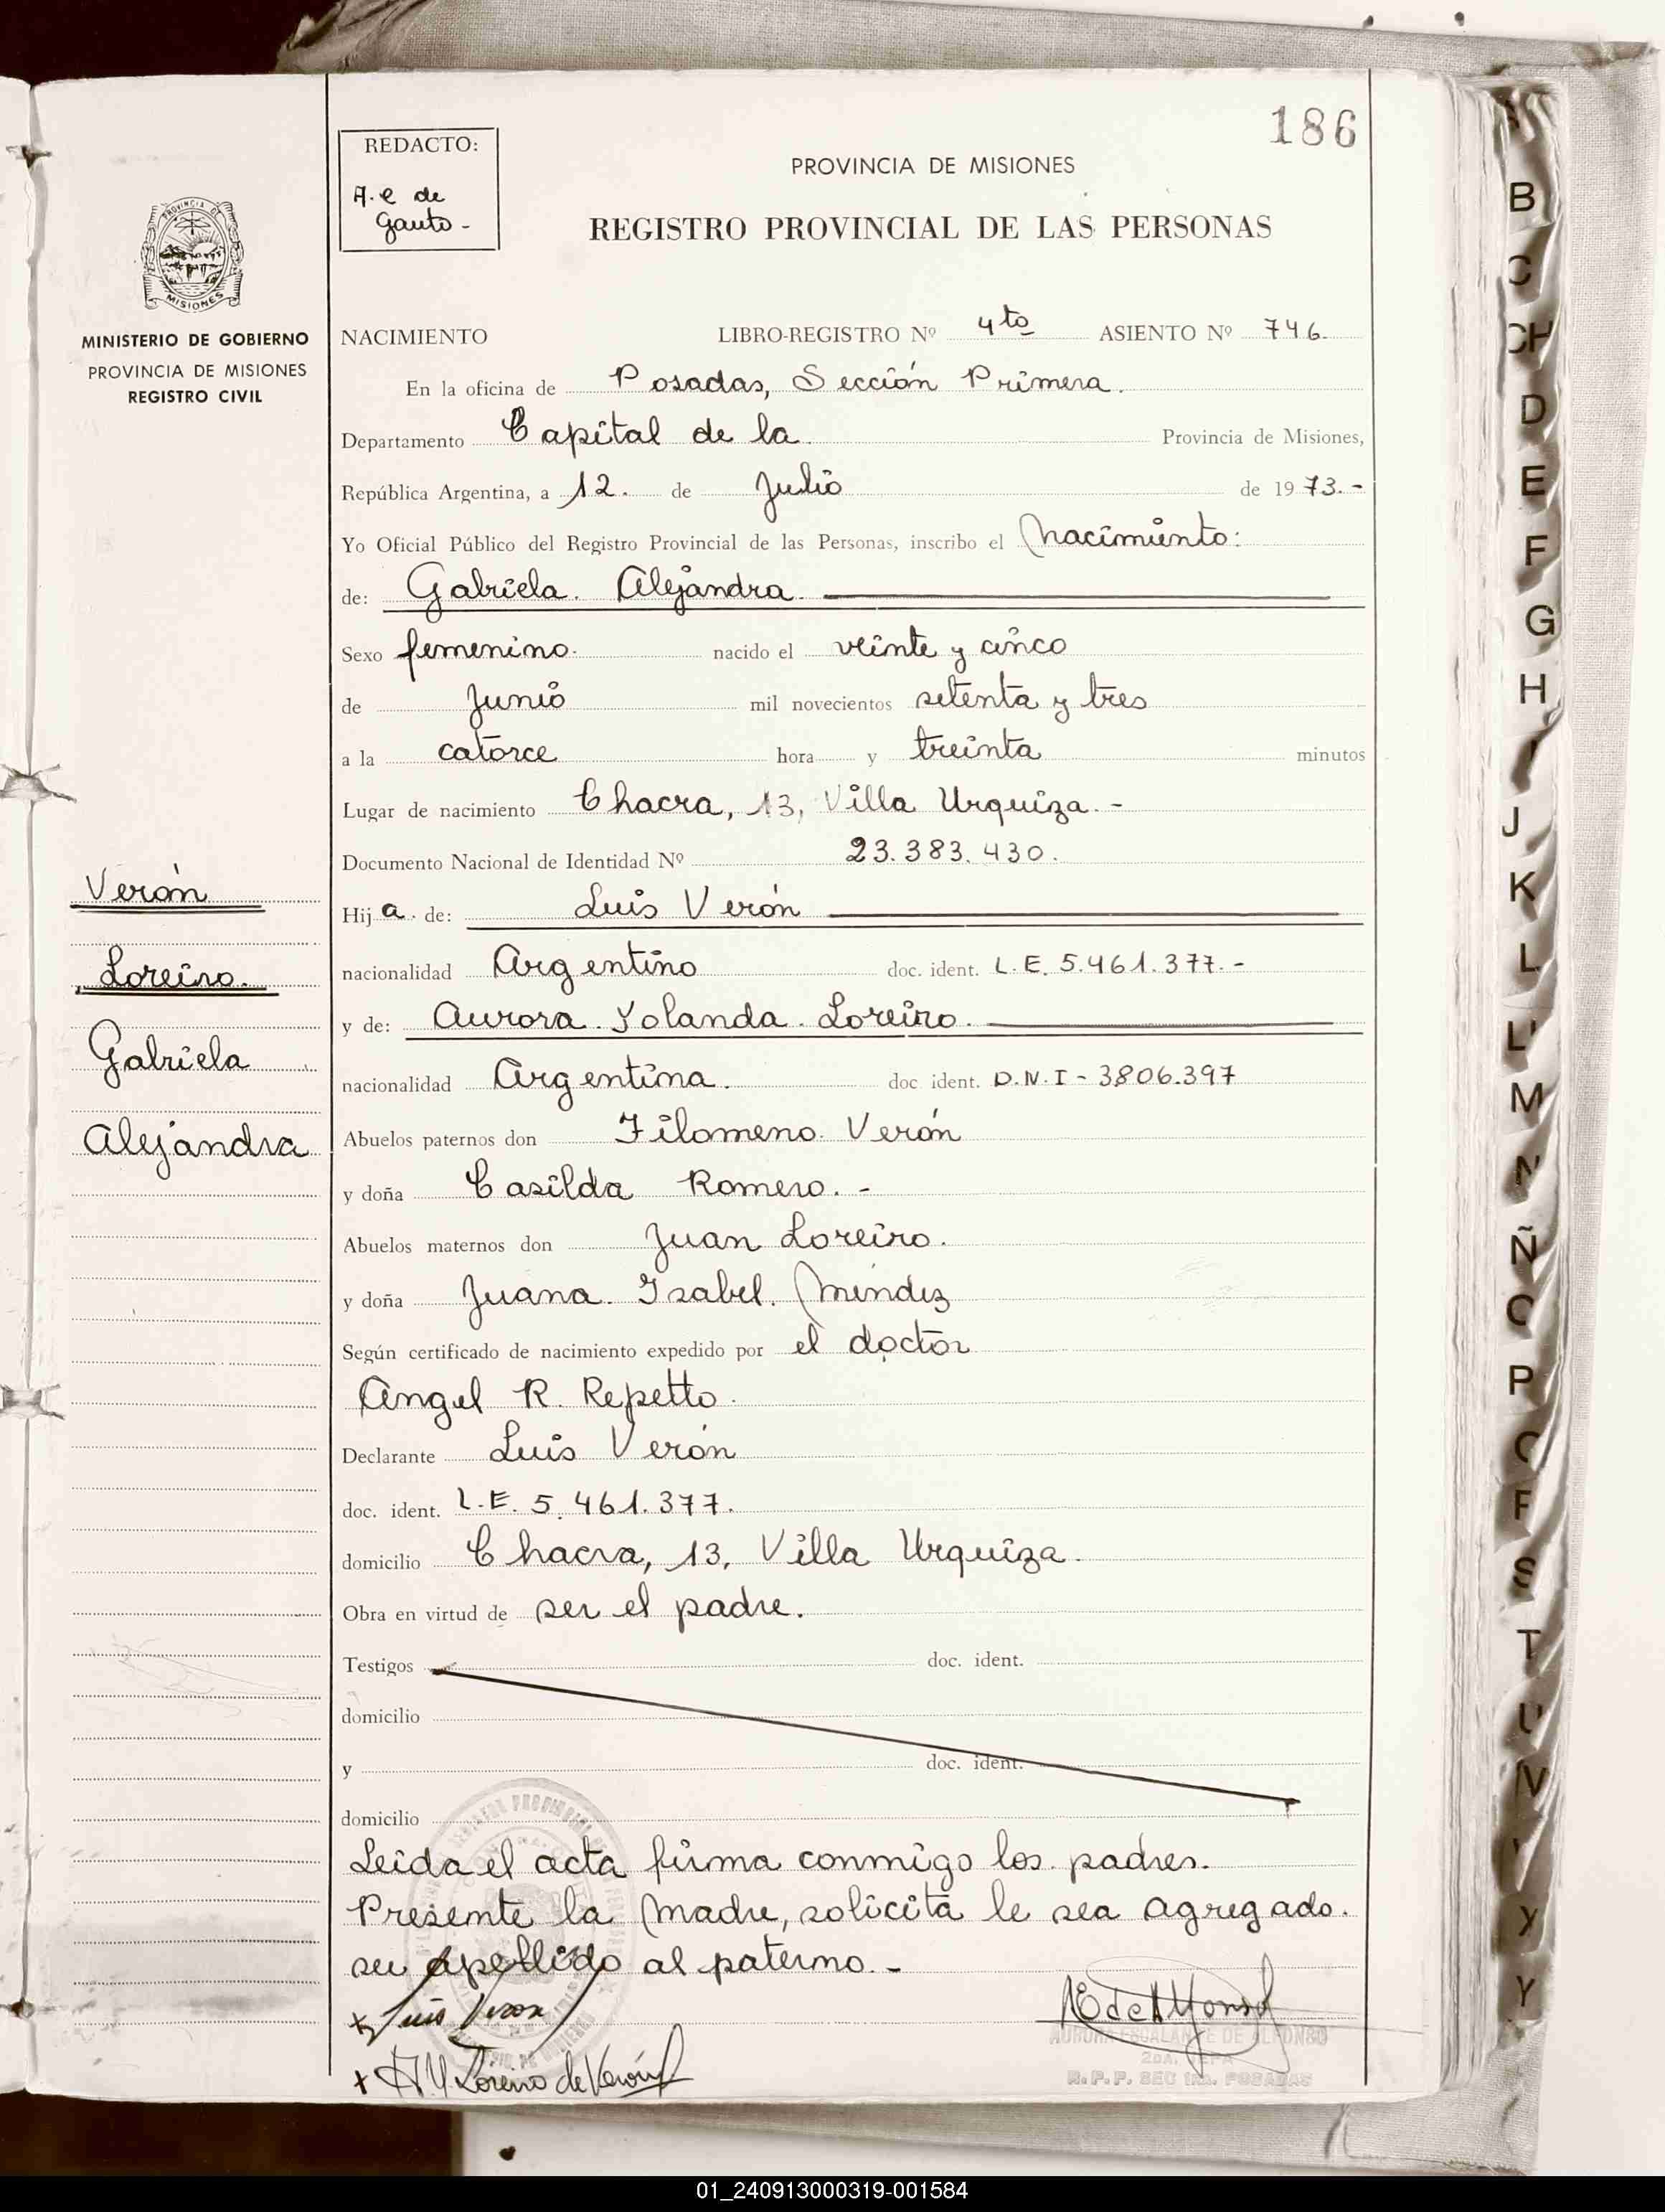 186
REDACTO:
A. e de
Gauto -
PROVINCIA DE MISIONES
REGISTRO PROVINCIAL DE LAS PERSONAS
PROVINCIA DE
MISIONES
MINISTERIO DE GOBIERNO
PROVINCIA DE MISIONES
REGISTRO CIVIL
NACIMIENTO LIBRO-REGISTRO Nº 4to ASIENTO Nº 746.
En la oficina de Posadas, Sección Primera.
Departamento Capital de la Provincia de Misiones,
República Argentina, a 12. de Julio de 1973.-
Yo Oficial Público del Registro Provincial de las Personas, inscribo el Nacimiento:
de: Gabriela. Alejandra.
Sexo femenino. nacido el veinte y cinco
de Junio mil novecientos setenta y tres
a la catorce hora y treinta minutos
Lugar de nacimiento Chacra, 13, Villa Urquiza. -
Documento Nacional de Identidad Nº 23.383.430.
Verón
Hija. de: Luis Verón
Loreiro.
nacionalidad Argentino doc. ident. L.E. 5.461.377.-
y de: Aurora. Yolanda. Loreiro.
Gabriela
nacionalidad Argentina. doc ident. D.N.I - 3806.397
Alejandra
Abuelos paternos don Filomeno. Verón
y doña Casilda Romero. -
Abuelos maternos don Juan Loreiro.
y doña Juana. Isabel. Méndez
Según certificado de nacimiento expedido por el doctor
Angel R. Repetto.
Declarante Luis Verón
doc. ident. L.E. 5.461.377.
domicilio Chacra, 13, Villa Urquiza.
Obra en virtud de ser el padre.
Testigos doc. ident.
domicilio
y doc. ident.
domicilio
Leida el acta firma conmigo los padres.
Presente la Madre, solicita le sea agregado.
su apellido al paterno. -
x Luis Veron
x A Y Loreiro de Verón
AURORA ESCALANTE DE ALFONSO
R.P.P. SEC 1ra. POSADAS
B
C
CH
D
E
F
G
H
I
J
K
L
M
N
Ñ
O
P
S
T
U
V
Y
01_240913000319-001584